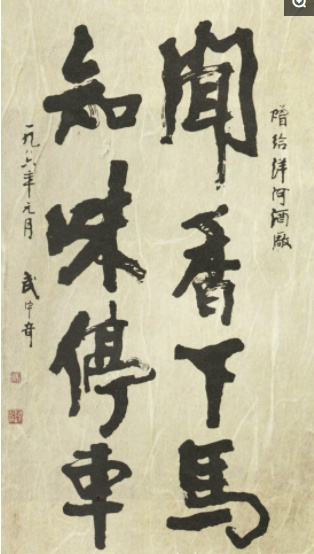 赠给洋河酒厰
聞香下馬
知味停車
一九八六年元月 武中奇